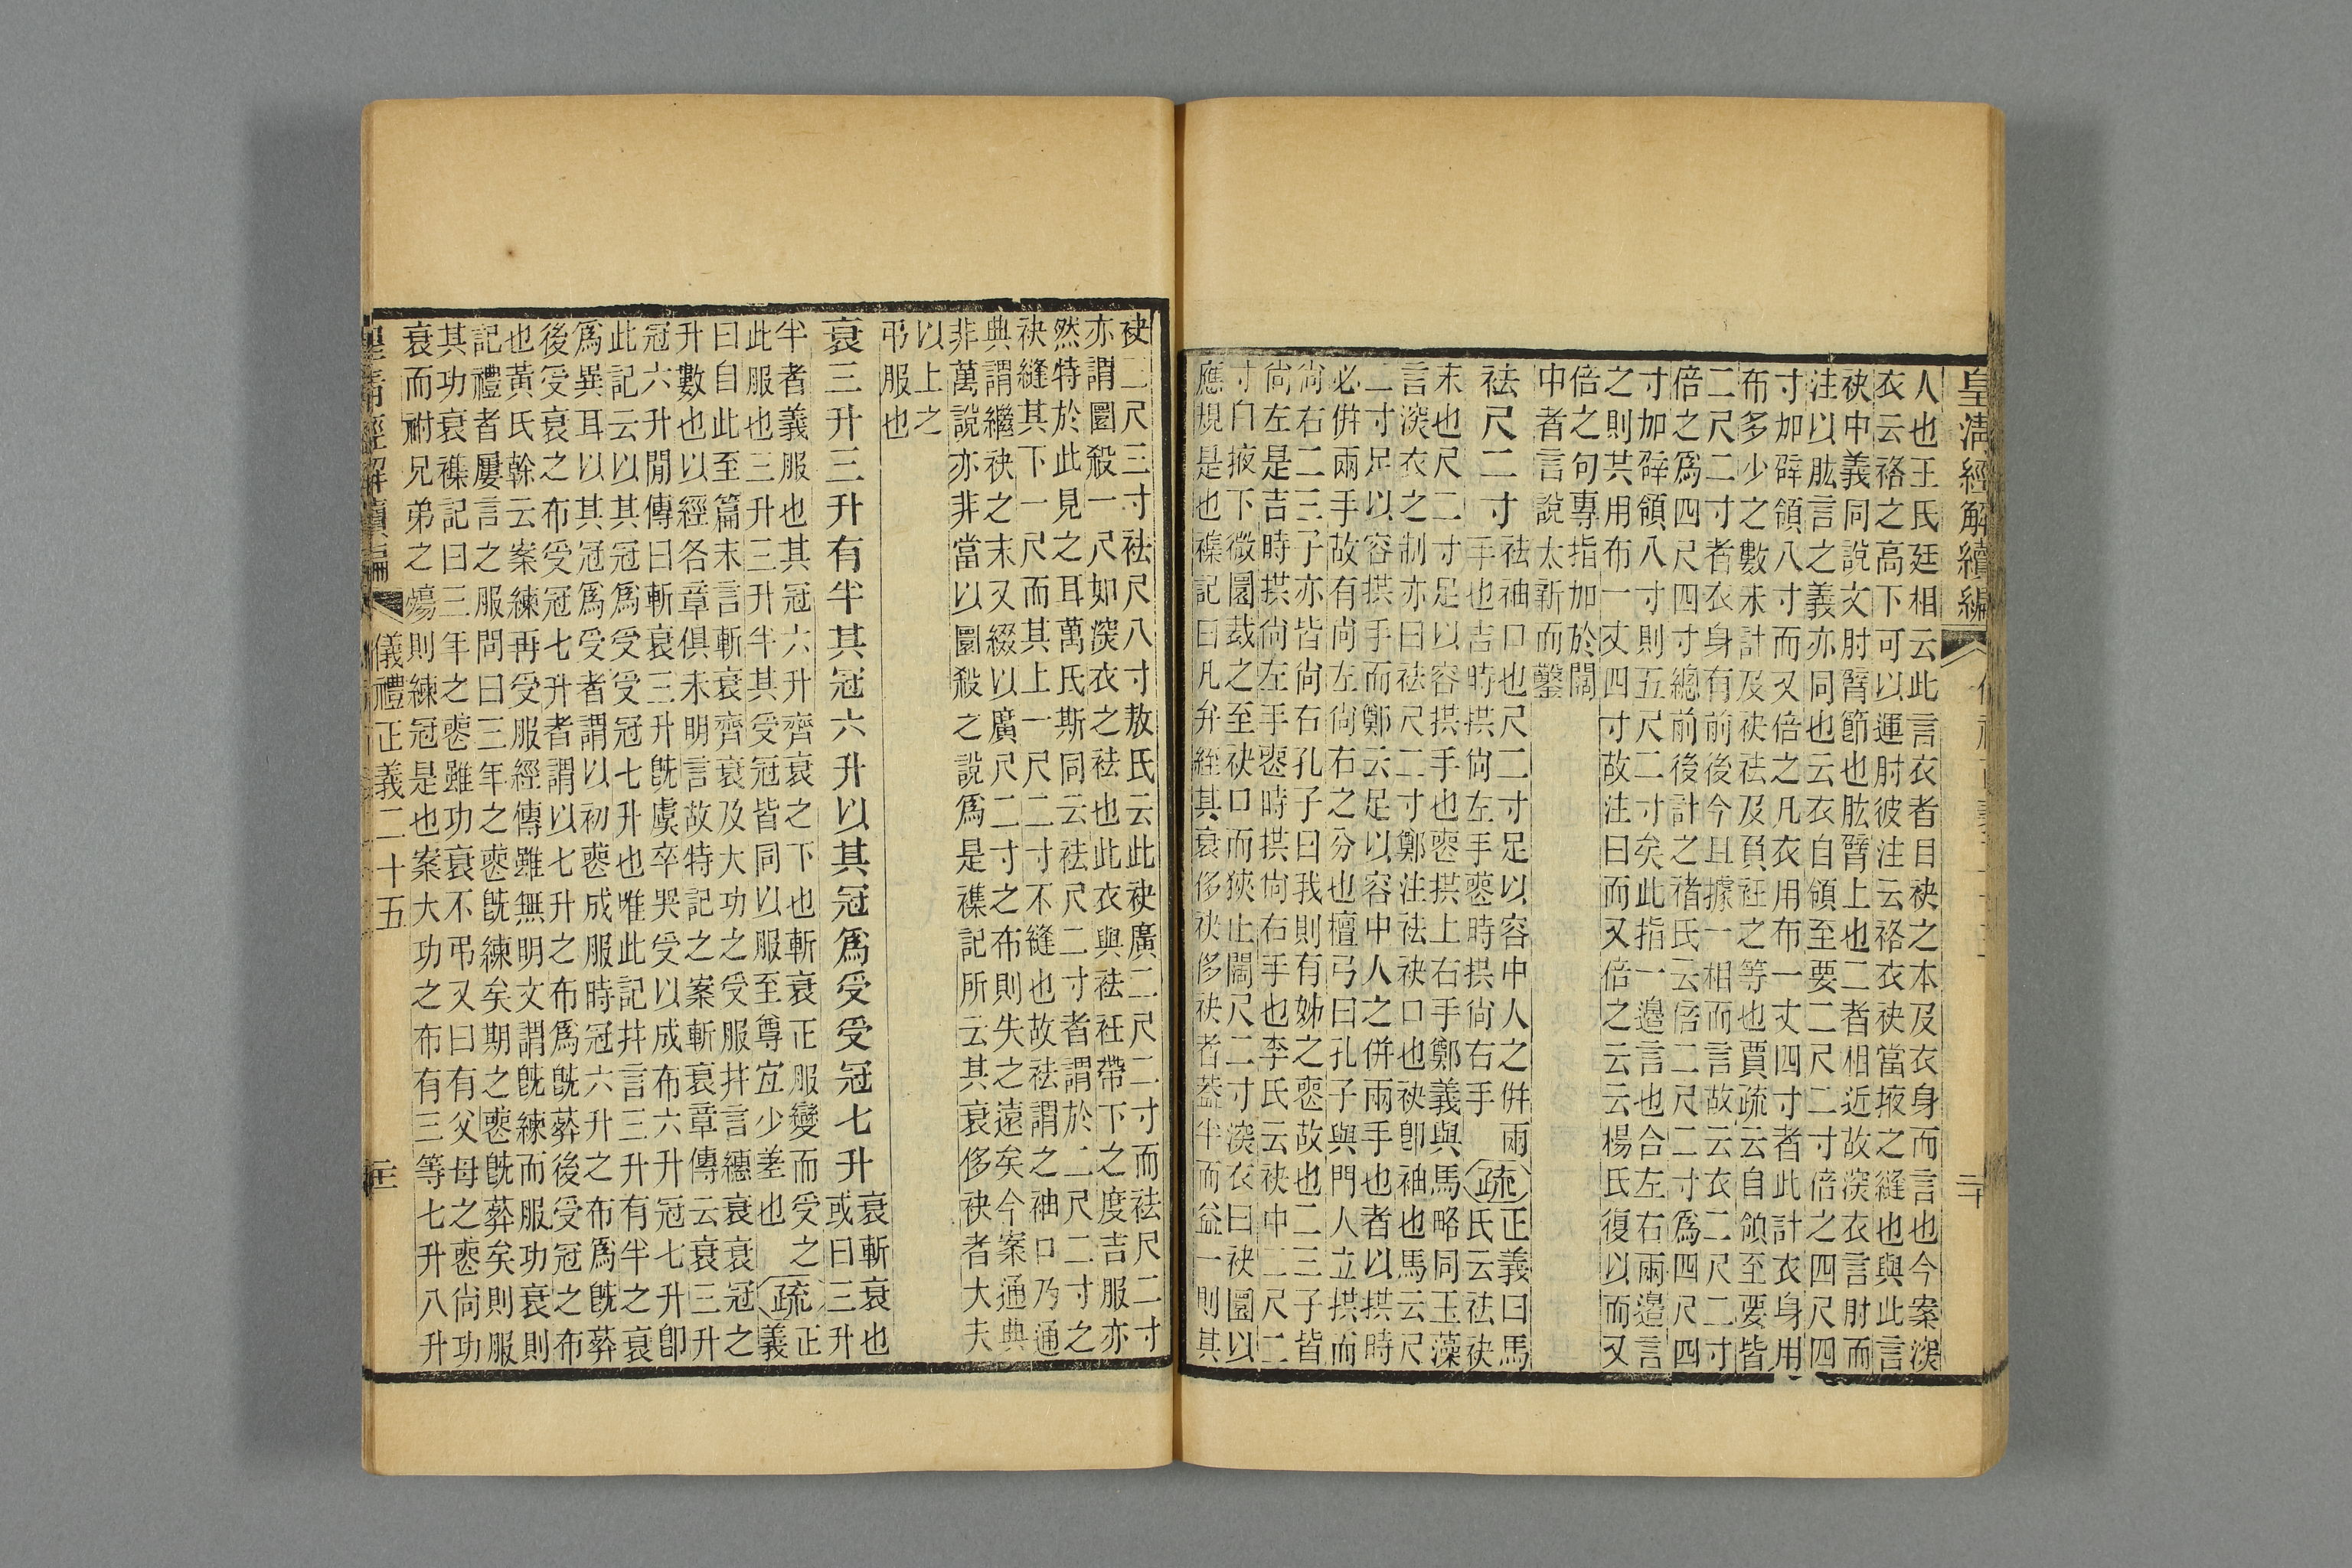 皇淸經解續編
二十
人也王氏廷相云此言衣者目袂之本及衣身而言也今案深
衣云袼之高下可以運肘彼注云袼衣袂當掖之縫也與此言
袂中義同說文肘臂節也肱臂上也二者相近故深衣言肘而
注以肱言之義亦同也云衣自領至要二尺二寸倍之四尺四
寸加辟領八寸而又倍之凡衣用布一丈四寸者此計衣身用
布多少之數未計及袂袪及負衽之等也賈疏云自領至要皆
二尺二寸者衣身有前後今且據一相而言故云衣二尺二寸
倍之爲四尺四寸總前後計之禇氏云倍二尺二寸爲四尺四
寸加辟領八寸則五尺二寸矣此指一邊言也合左右兩邊言
之則共用布一丈四寸故注曰而又倍之云云楊氏復以而又
倍之句專指加於闊
中者言說太新而鑿
袪尺二寸
袪袖口也尺二寸足以容中人之併兩
手也吉時拱尙左手喪時拱尙右手
疏
正義曰馬
氏云袪袂
末也尺二寸足以容拱手也喪拱上右手鄭義與馬略同玉藻
言深衣之制亦曰袪尺二寸鄭注袪袂口也袂卽袖也馬云尺
二寸足以容拱手而鄭云足以容中人之併兩手也者以拱時
必併兩手故有尙左尙右之分也檀弓曰孔子與門人立拱而
尙右二三子亦皆尙右孔子曰我則有姊之喪故也二三子皆
尙左是吉時拱尙左手喪時拱尙右手也李氏云袂中二尺二
寸自掖下微圜裁之至袂口而狹止闊尺二寸深衣曰袂圜以
應規是也襍記曰凡弁絰其衰侈袂侈袂者葢半而益一則其
袂三尺三寸袪尺八寸敖氏云此袂廣二尺二寸而袪尺二寸
亦謂圜殺一尺如深衣之袪也此衣與袪衽帶下之度吉服亦
然特於此見之耳萬氏斯同云袪尺二寸者謂於二尺二寸之
袂縫其下一尺而其上一尺二寸不縫也故袪謂之袖口乃通
典謂繼袂之末又綴以廣尺二寸之布則失之遠矣今案通典
非萬說亦非當以圜殺之說爲是襍記所云其衰侈袂者大夫
以上之
弔服也
衰三升三升有半其冠六升以其冠爲受受冠七升
衰斬衰也
或曰三升
半者義服也其冠六升齊衰之下也斬衰正服變而受之
此服也三升三升半其受冠皆同以服至尊宜少差也
疏
正
義
曰自此至篇末言斬衰齊衰及大功之受服幷言繐衰衰冠之
升數也以經各章俱未明言故特記之案斬衰章傳云衰三升
冠六升閒傳曰斬衰三升旣虞卒哭受以成布六升冠七升卽
此記云以其冠爲受受冠七升也唯此記幷言三升有半之衰
爲異耳以其冠爲受者謂以初喪成服時冠六升之布爲旣葬
後受衰之布受冠七升者謂以七升之布爲旣葬後受冠之布
也黃氏榦云案練再受服經傳雖無明文謂旣練而服功衰則
記禮者屢言之服問曰三年之喪旣練矣期之喪旣葬矣則服
其功衰襍記曰三年之喪雖功衰不弔又曰有父母之喪尙功
衰而祔兄弟之殤則練冠是也案大功之布有三等七升八升
儀禮正義二十五